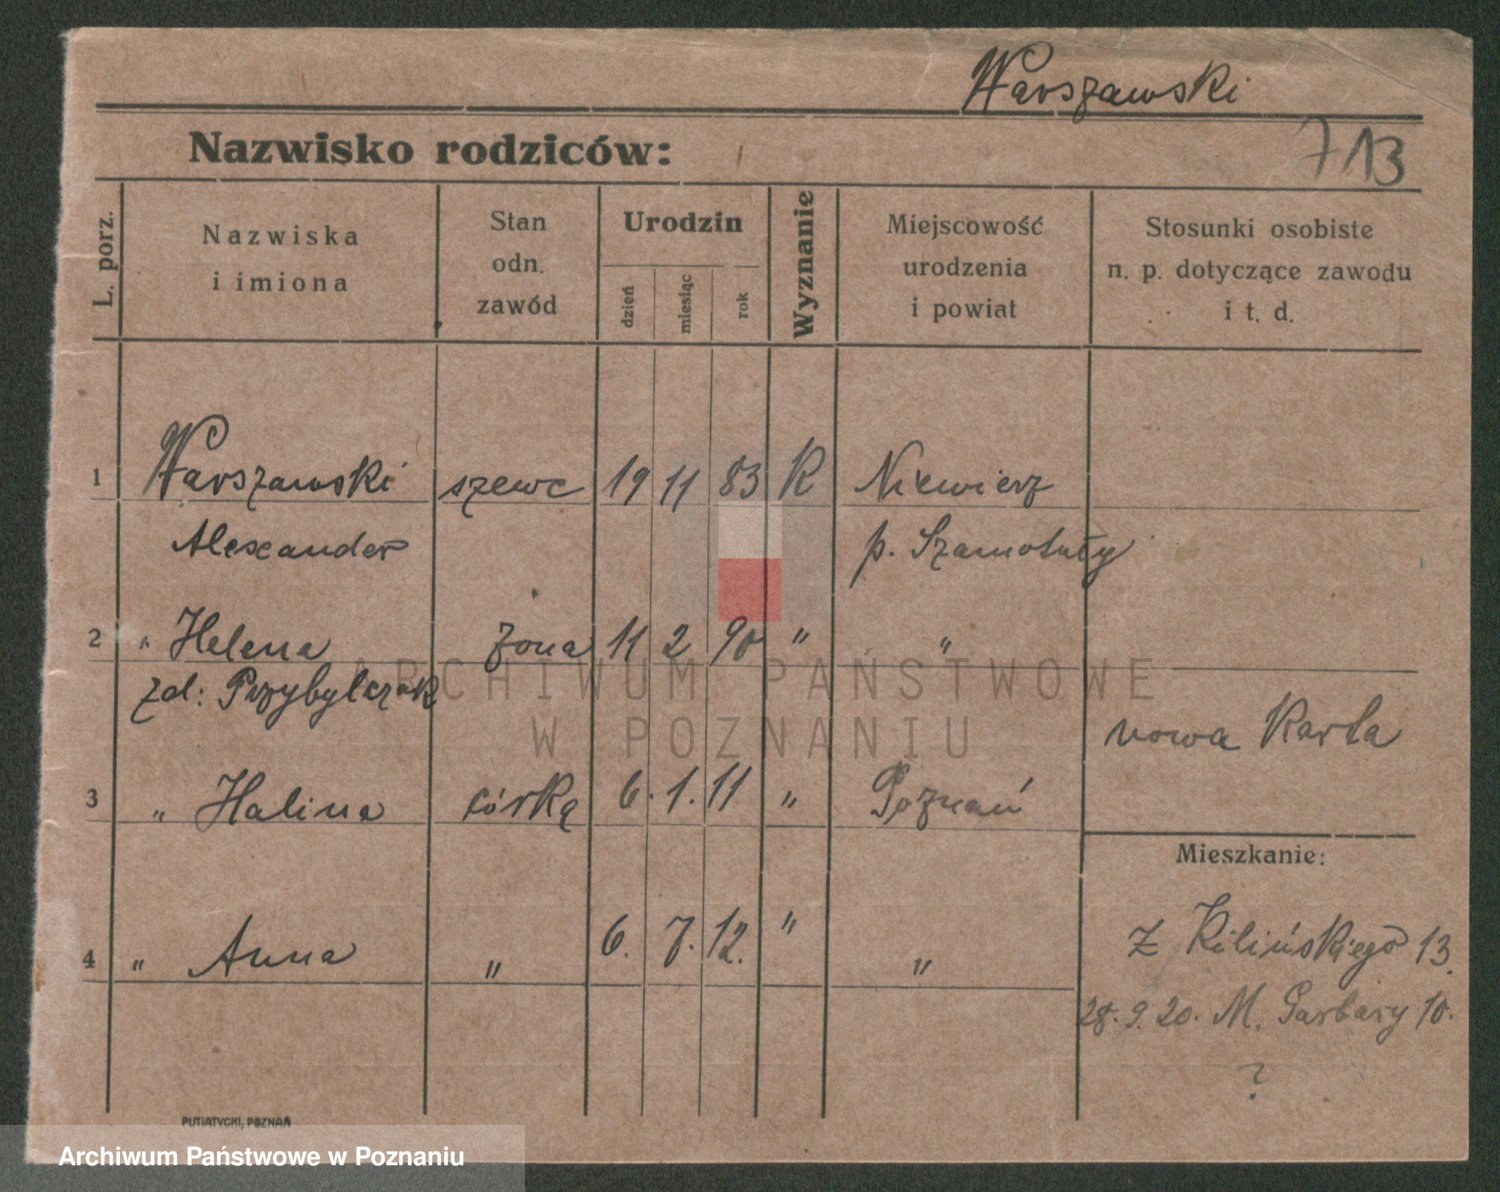 Warszawski
Nazwisko rodziców:
713
L. porz.
Nazwiska
i imiona
Stan
odn.
zawód
Urodzin
dzień
miesiąc
rok
Wyznanie
Miejscowość
urodzenia
i powiat
Stosunki osobiste
n. p. dotyczące zawodu
i t. d.
1 Warszawski szewc 19 11 83 R Niewierz
Alexander p. Szamotuły
2 " Helena żona 11 2 90 " "
zd: Przybylczak
nowa Karta
3 " Halina córka 6. 1. 11 " Poznań
Mieszkanie:
4 " Anna " 6. 7. 12. " "
z Kilińskiego 13.
28. 9. 20. M. Garbary 10.
?
PUTIATYCKI, POZNAŃ
ARCHIWUM PAŃSTWOWE
W POZNANIU
Archiwum Państwowe w Poznaniu